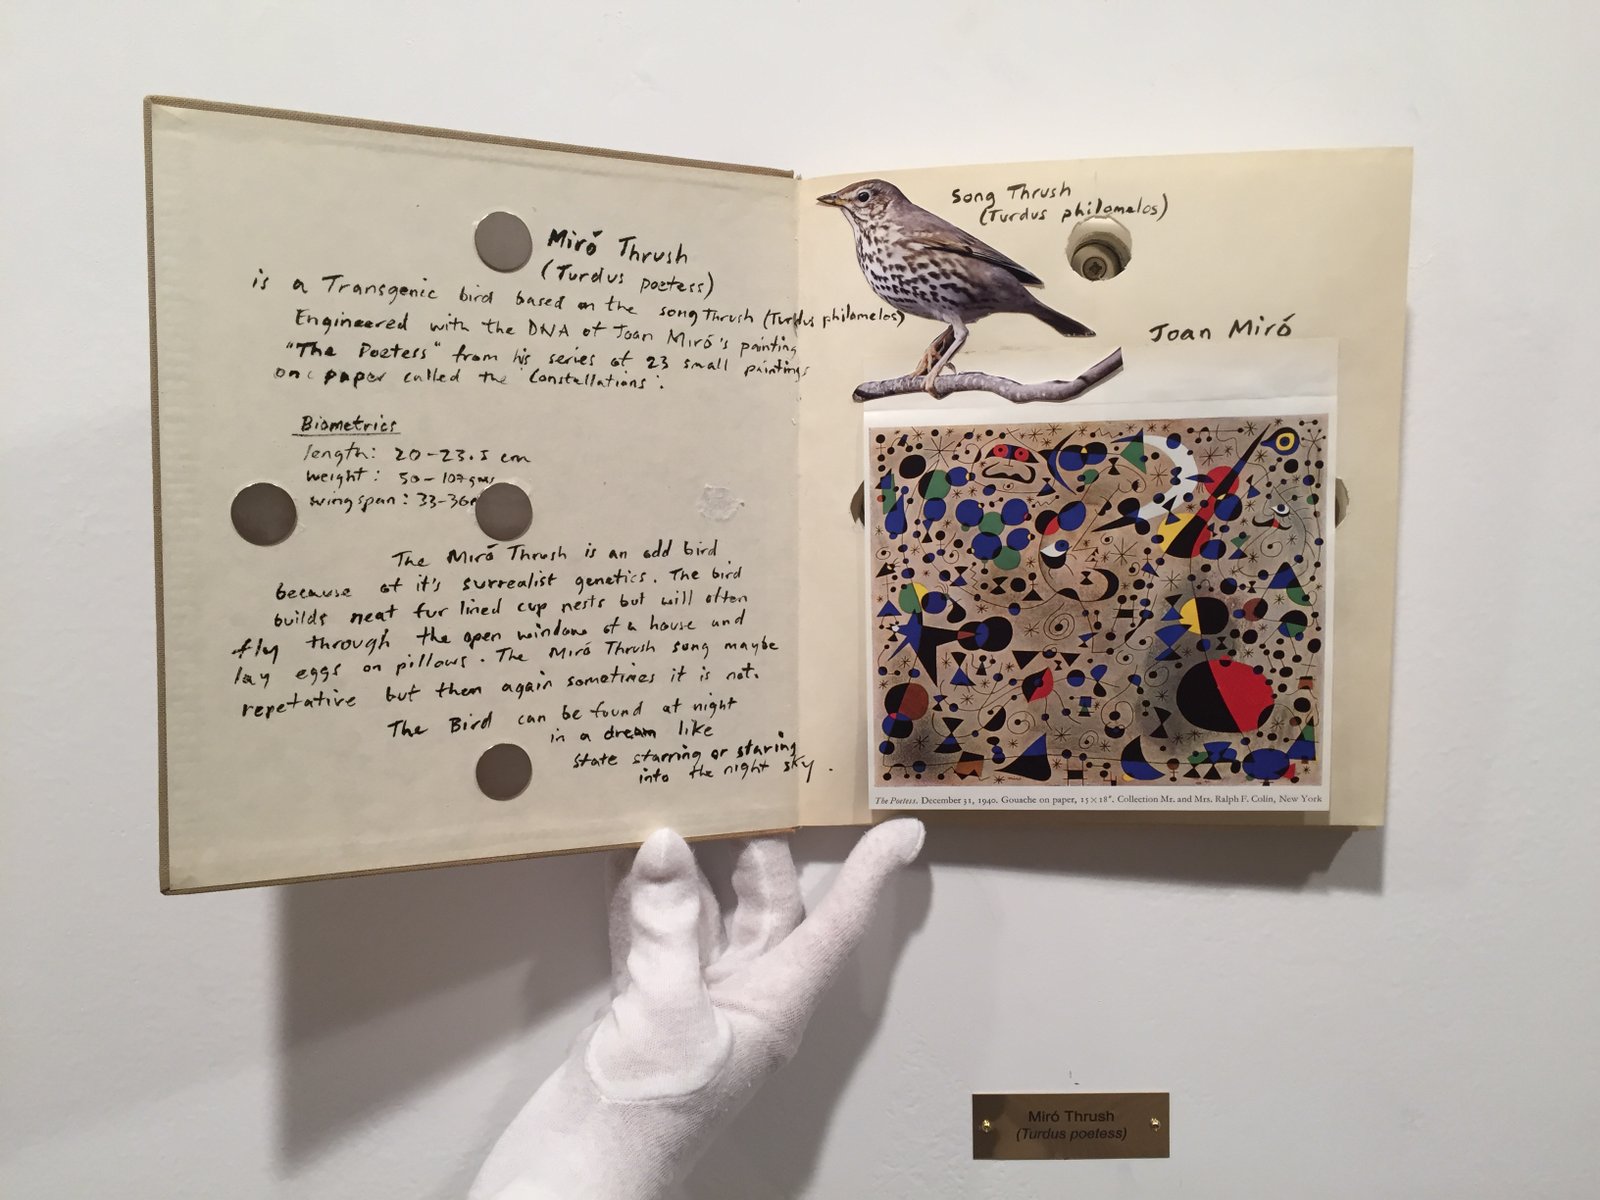 Miró Thrush
(Turdus poetess)
is a Transgenic bird based on the song Thrush (Turdus philomelos)
Engineered with the DNA of Joan Miró's painting
"The Poetess" from his series of 23 small paintings
on paper called the Constellations.
Biometrics
length: 20-23.5 cm
weight: 50-107gms
wingspan: 33-36
The Miró Thrush is an odd bird
because of it's surrealist genetics. The bird
builds neat fur lined cup nests but will often
fly through the open window of a house and
lay eggs on pillows. The Miró Thrush song maybe
repetative but then again sometimes it is not.
The Bird can be found at night
in a dream like
state starring or staring
into the night sky.
Song Thrush
(Turdus philomelos)
Joan Miró
The Poetess. December 31, 1940. Gouache on paper, 15 × 18". Collection Mr. and Mrs. Ralph F. Colin, New York
Miró Thrush
(Turdus poetess)